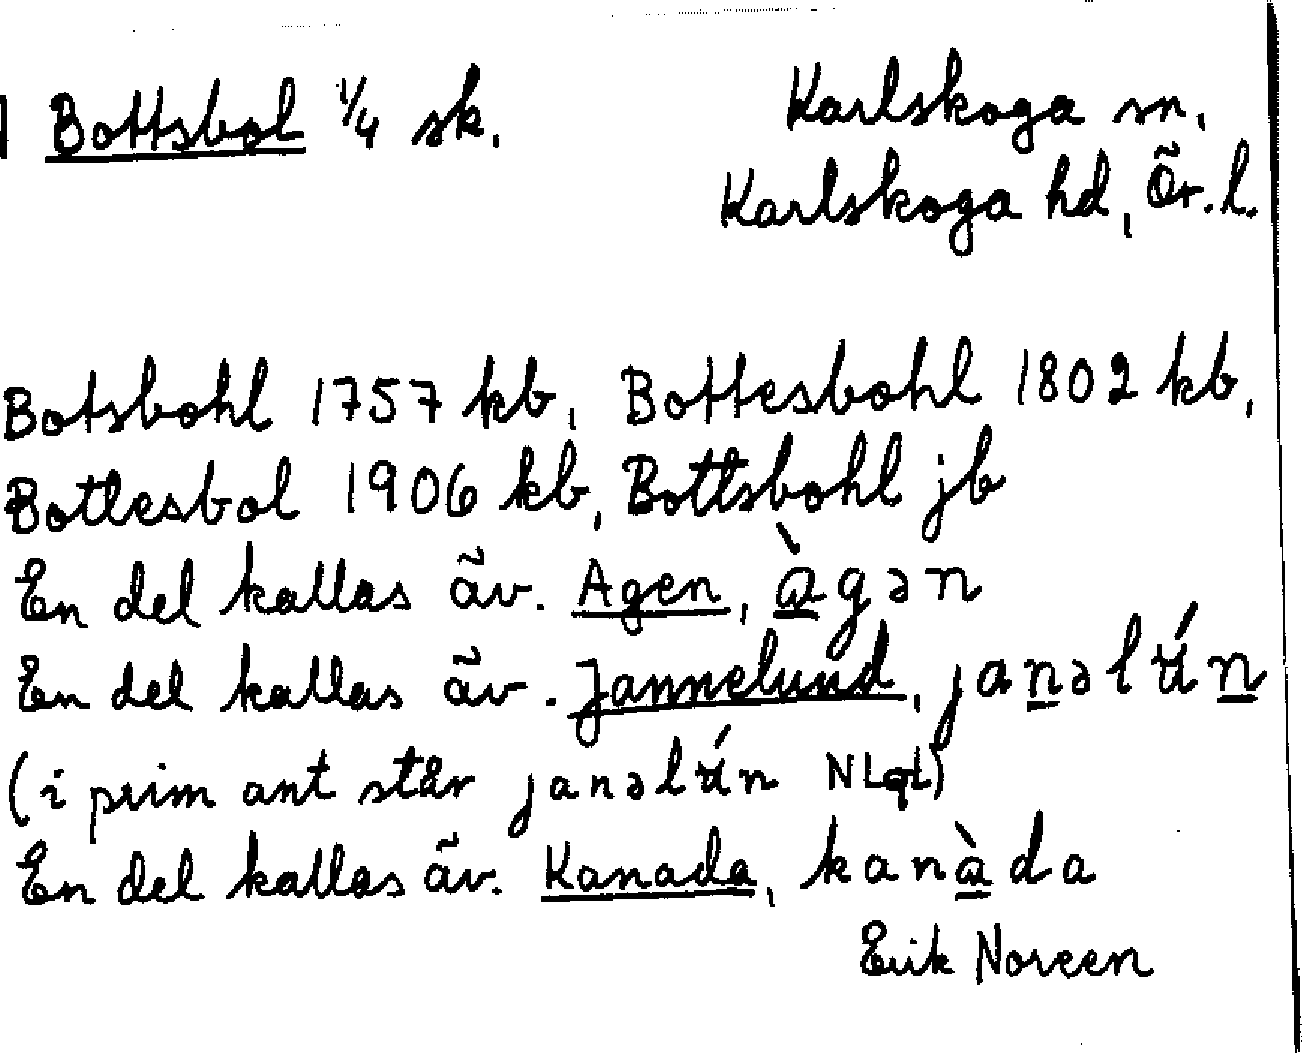 Bottsbol 1/4 sk. Karlskoga sn.
Karlskoga hd, Ör. l.
Botsbohl 1757 kb, Bottesbohl 1802 kb,
Bottesbol 1906 kb, Bottsbohl jb
En del kallas äv. Agen, àgən
En del kallas äv. Jannelund, janəlʉ́n
(i prim ant står janəlʉ́n
En del kallas äv. Kanada, kanàda
Erik Noreen